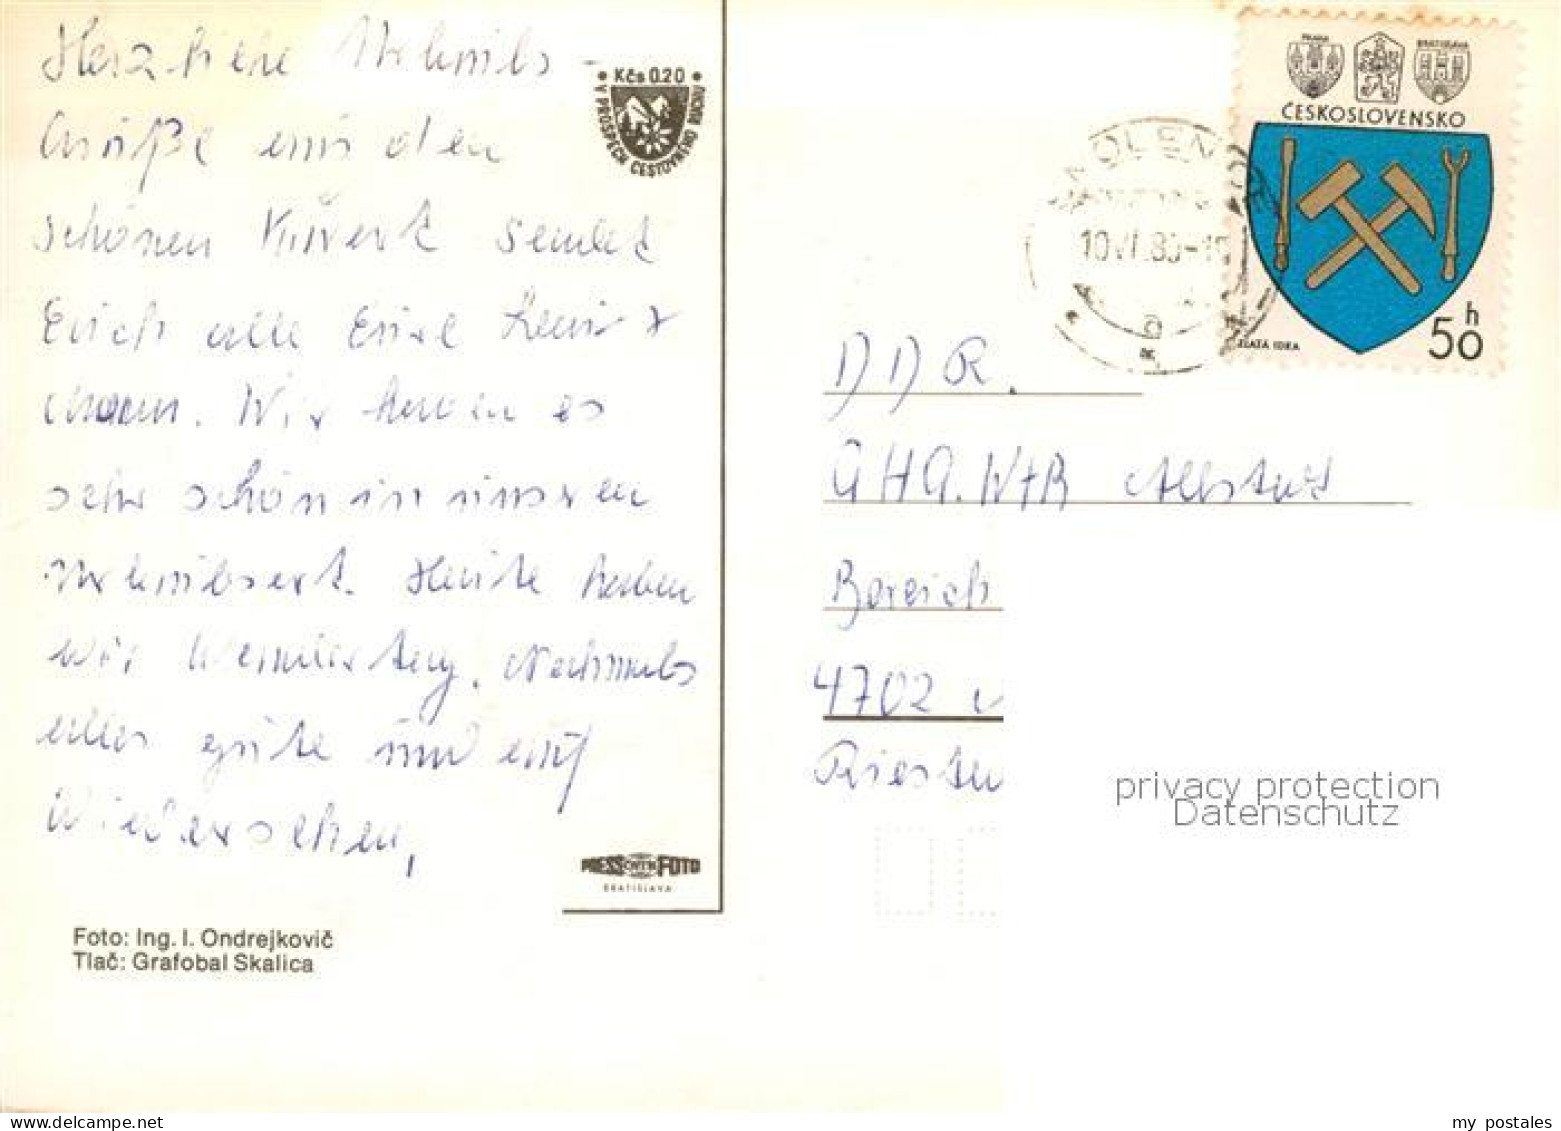 Herzliche Urlaubs-
Grüße aus den
schönen Kurort sendet
Euch alle Eure
Wir haben es
sehr schön in unseren
Urlaubsort. Heute haben
wir Wandertag. Nochmals
alles gute und auf
Wiedersehen,
• Kčs 0.20 •
V PROSPECH CESTOVNÉHO RUCHU
PRESSFOTO
BRATISLAVA
Foto: Ing. I. Ondrejkovič
Tlač: Grafobal Skalica
PRAHA
BRATISLAVA
ČESKOSLOVENSKO
ZLATÁ IDKA
50 h
10.VI.80-
DDR.
GHG. WtB
Bereich
4702
privacy protection
Datenschutz
my postales